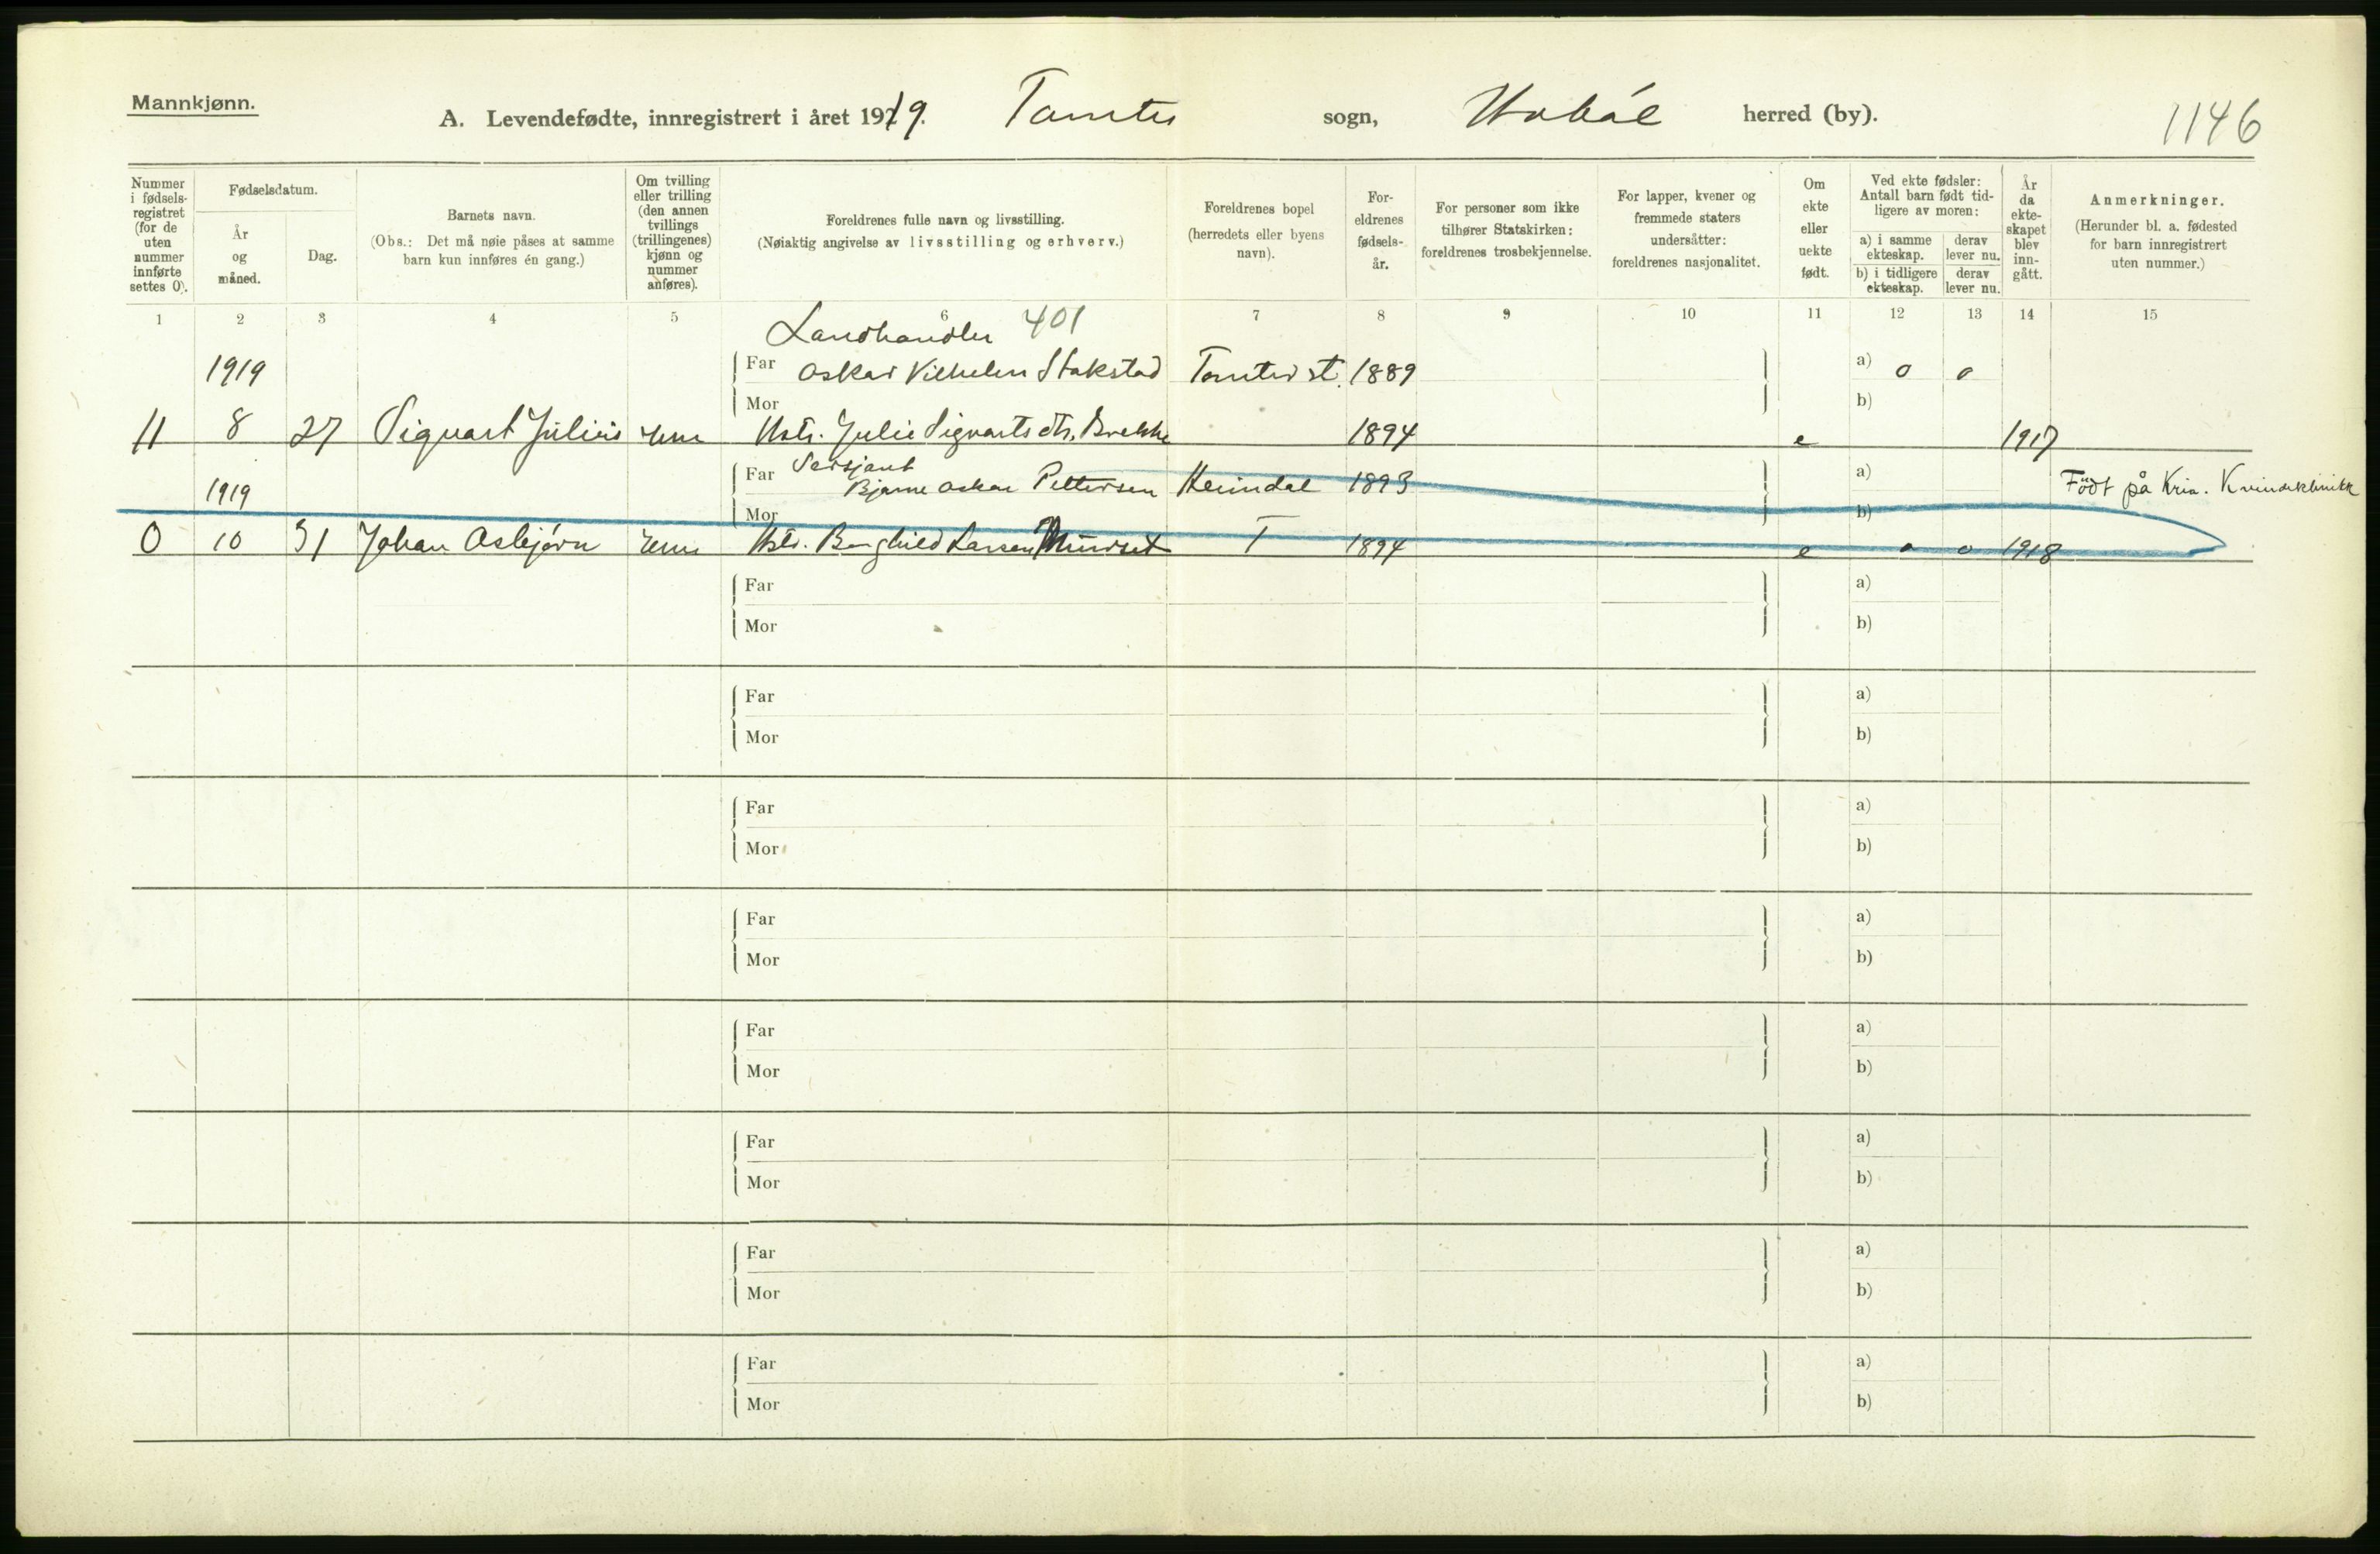 Mannkjønn.
A. Levendefødte, innregistrert i året 1919. Tomter sogn, Hobøl herred (by).
1146
Nummer i fødsels-registret (for de uten nummer innførte settes 0).
Fødselsdatum.
År og måned.
Dag.
Barnets navn.
(Obs.: Det må nøie påses at samme barn kun innføres én gang.)
Om tvilling eller trilling (den annen tvillings (trillingenes) kjønn og nummer anføres).
Foreldrenes fulle navn og livsstilling.
(Nøiaktig angivelse av livsstilling og erhverv.)
Foreldrenes bopel (herredets eller byens navn).
For-eldrenes fødsels-år.
For personer som ikke tilhører Statskirken: foreldrenes trosbekjennelse.
For lapper, kvener og fremmede staters undersåtter: foreldrenes nasjonalitet.
Om ekte eller uekte født.
Ved ekte fødsler: Antall barn født tid-ligere av moren:
a) i samme ekteskap.
derav lever nu.
b) i tidligere ekteskap.
derav lever nu.
År da ekte-skapet blev inn-gått.
Anmerkninger.
(Herunder bl. a. fødested for barn innregistrert uten nummer.)
1 2 3 4 5 6 7 8 9 10 11 12 13 14 15
Landhandler 401
1919 Far Oskar Vilhelm Stakstad Tomter st. 1889 a) 0 0
Mor b)
11 8 27 Sigvart Julius Hstr. Julie Sigvartsdtr. Brekke 1894 e 1917
Sersjant
1919 Far Bjarne Oskar Pettersen 1893 a) Født på Kria. Kvindeklinikk
Mor b)
0 10 31 Johan Asbjørn Hstr. Borghild Larsen T 1894 e 0 0 1918
Far a)
Mor b)
Far a)
Mor b)
Far a)
Mor b)
Far a)
Mor b)
Far a)
Mor b)
Far a)
Mor b)
Far a)
Mor b)
Far a)
Mor b)